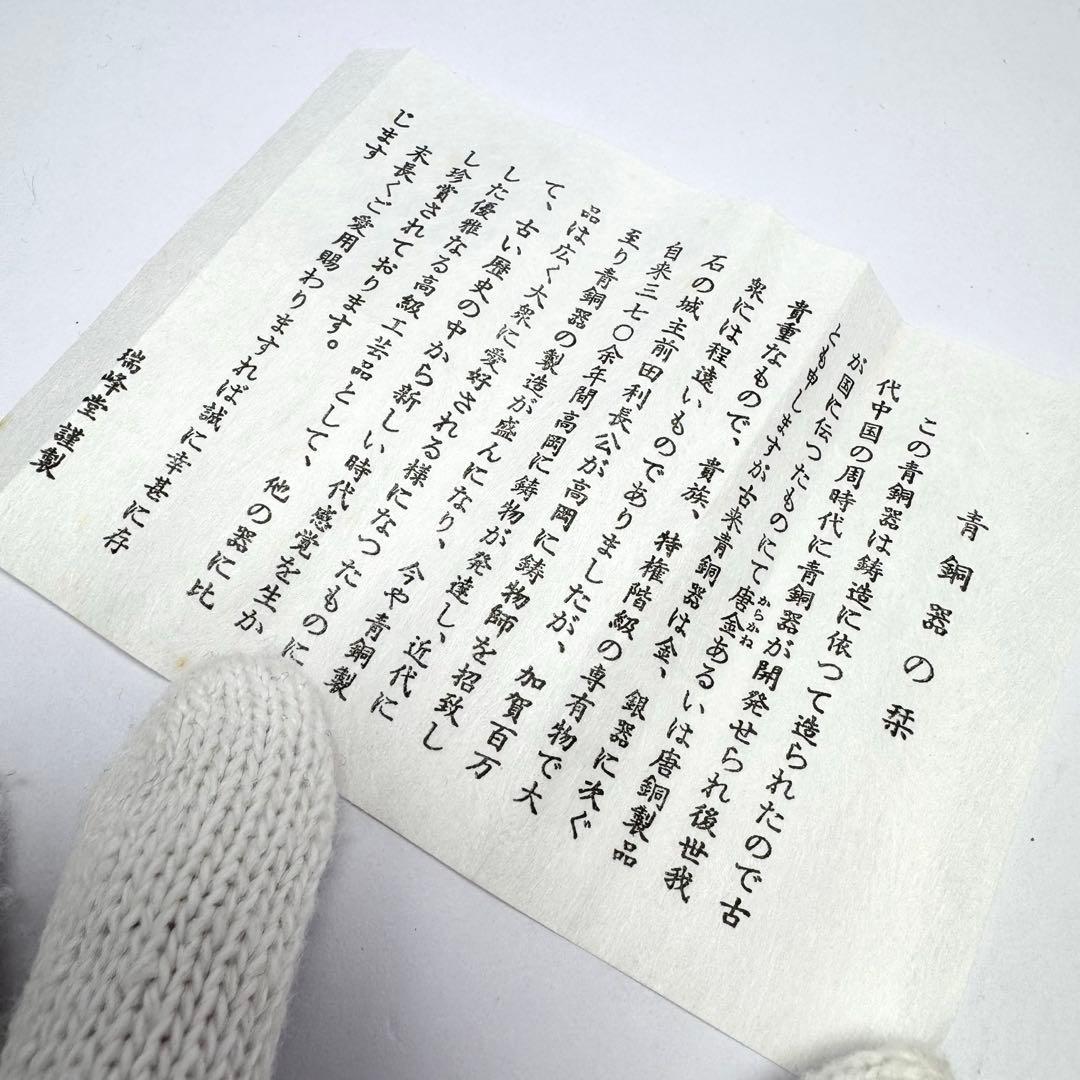 青銅器の栞
この青銅器は鋳造に依つて造られたので古
代中国の周時代に青銅器が開発せられ後世我
からかね
が国に伝つたものにて唐金あるいは唐銅製品
とも申しますが古来青銅器は金、銀器に次ぐ
貴重なもので、貴族、特権階級の専有物で大
衆には程遠いものでありましたが、加賀百万
石の城主前田利長公が高岡に鋳物師を招致し
自来三七〇余年間高岡に鋳物が発達し、近代に
至り青銅器の製造が盛んになり、今や青銅製
品は広く大衆に愛好される様になつたものに
て、古い歴史の中から新しい時代感覚を生か
した優雅なる高級工芸品として、他の器に比
し珍賞されております。
末長くご愛用賜わりますれば誠に幸甚に存
じます
瑞峰堂謹製